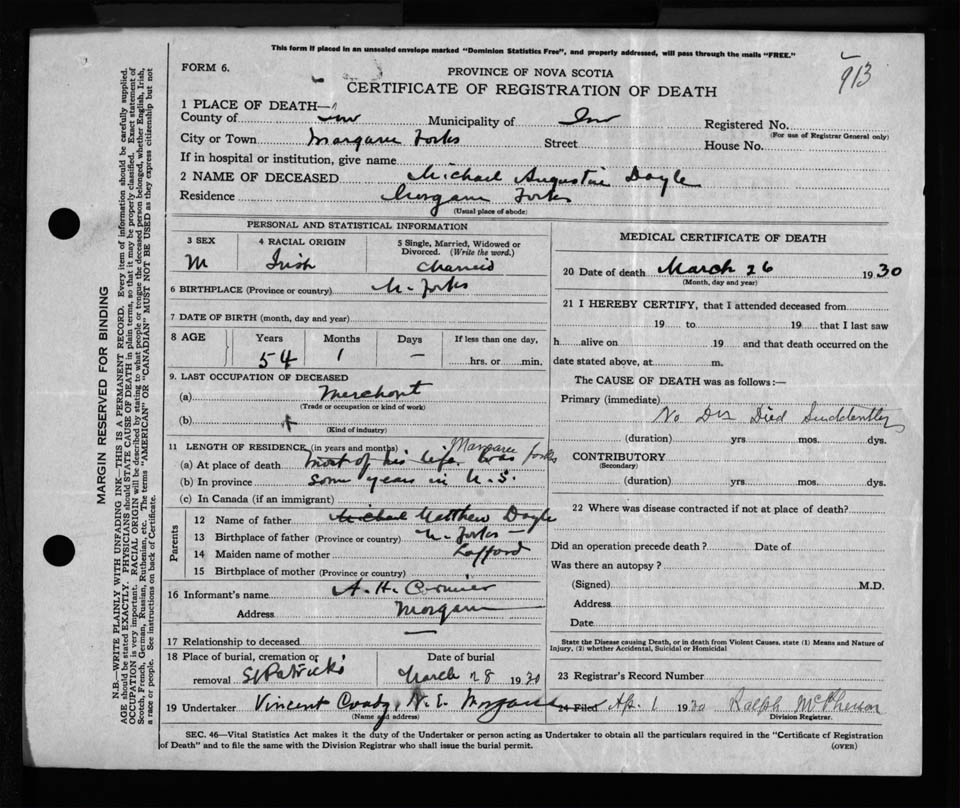 This form if placed in an unsealed envelope marked "Dominion Statistics Free", and properly addressed, will pass through the mails "FREE."
FORM 6.
913
PROVINCE OF NOVA SCOTIA
CERTIFICATE OF REGISTRATION OF DEATH
1 PLACE OF DEATH—
County of Inv Municipality of Inv Registered No.
(For use of Registrar General only)
City or Town Margaree Forks Street House No.
If in hospital or institution, give name
2 NAME OF DECEASED Michael Augustin Doyle
Residence Margaree Forks
(Usual place of abode)
PERSONAL AND STATISTICAL INFORMATION
3 SEX
M
4 RACIAL ORIGIN
Irish
5 Single, Married, Widowed or
Divorced. (Write the word.)
6 BIRTHPLACE (Province or country) M. Forks
7 DATE OF BIRTH (month, day and year)
8 AGE
Years Months Days If less than one day,
54 1 — hrs. or min.
9. LAST OCCUPATION OF DECEASED
(a) Merchant
(Trade or occupation or kind of work)
(b)
(Kind of industry)
11 LENGTH OF RESIDENCE (in years and months) Margaree Forks
(a) At place of death most of his life was
(b) In province some years in U.S.
(c) In Canada (if an immigrant)
Parents
12 Name of father Michael Matthew Doyle
13 Birthplace of father (Province or country) M. Forks
14 Maiden name of mother Lafford
15 Birthplace of mother (Province or country)
16 Informant's name A. H. Cormier
Address Margaree
17 Relationship to deceased —
18 Place of burial, cremation or
removal St Patrick's
Date of burial
March 28 1930
19 Undertaker Vincent Coady, N. E. Margaree
(Name and address)
MEDICAL CERTIFICATE OF DEATH
20 Date of death March 26 1930
(Month, day and year)
21 I HEREBY CERTIFY, that I attended deceased from
19 to 19 that I last saw
h alive on 19 and that death occurred on the
date stated above, at m.
The CAUSE OF DEATH was as follows:—
Primary (immediate)
No Dr. Died Suddently
(duration) yrs mos. dys.
CONTRIBUTORY
(Secondary)
(duration) yrs. mos. dys.
22 Where was disease contracted if not at place of death?
Did an operation precede death? Date of
Was there an autopsy?
(Signed) M.D.
Address
Date
State the Disease causing Death, or in death from Violent Causes, state (1) Means and Nature of
Injury, (2) whether Accidental, Suicidal or Homicidal
23 Registrar's Record Number
24 Filed Ap. 1 1930 Ralph McPherson
Division Registrar.
SEC. 46—Vital Statistics Act makes it the duty of the Undertaker or person acting as Undertaker to obtain all the particulars required in the "Certificate of Registration
of Death" and to file the same with the Division Registrar who shall issue the burial permit.
(OVER)
MARGIN RESERVED FOR BINDING
N.B.—WRITE PLAINLY WITH UNFADING INK—THIS IS A PERMANENT RECORD. Every item of information should be carefully supplied.
AGE should be stated EXACTLY. PHYSICIANS should STATE CAUSE OF DEATH in plain terms, so that it may be properly classified. Exact statement of
OCCUPATION is very important. RACIAL ORIGIN will be described by stating to what people or tongue the deceased person belonged, whether English, Irish,
Scotch, French, German, Russian, Ruthenian, etc. The terms "AMERICAN" OR "CANADIAN" MUST NOT BE USED as they express citizenship but not
a race or people. See instructions on back of Certificate.